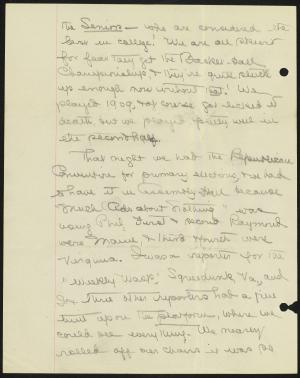 the Seniors — who are considered the
best in college! We are all
for fear they get the Basket-ball
Championship & they're quite stuck
up enough now without that! We
played 1909, & of course got licked to
death but we played pretty well in
the second half.
That night we had the Republican
Convention for primary elections, & we had
to have it in Assembly Hall because
"Much Ado about Nothing" was
using Phil. First & second Raymond
were Maine & Third North were
Virginia. I was a reporter for the
"Weekly Wack", Squeedunk, Va, and
the other reporters had a fine
time upon the platform, where we
could see everything. We nearly
rolled off our chairs it was so